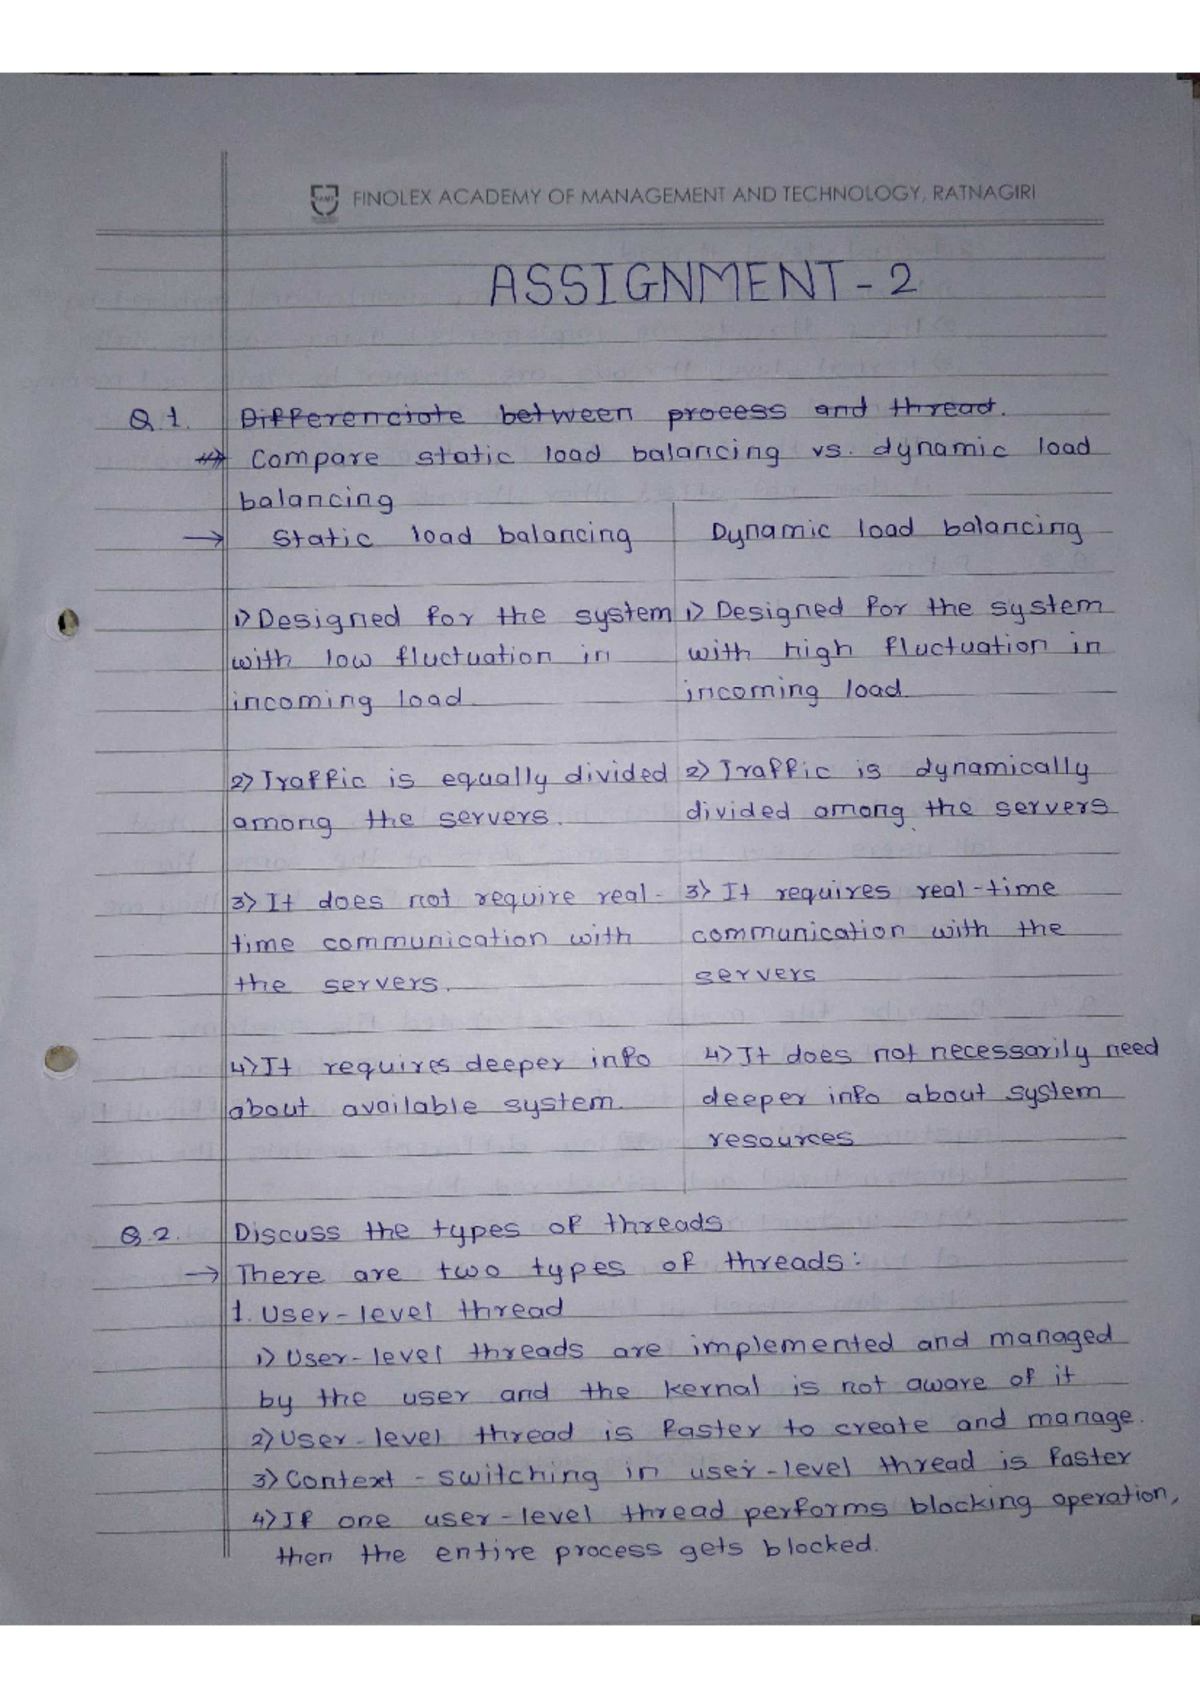 FINOLEX ACADEMY OF MANAGEMENT AND TECHNOLOGY, RATNAGIRI
ASSIGNMENT - 2
Q.1. Differenciate between process and thread.
Compare static load balancing vs. dynamic load
balancing
→ Static load balancing
1) Designed for the system
with low fluctuation in
incoming load
2) Traffic is equally divided
among the servers.
3) It does not require real-
time communication with
the servers.
4) It requires deeper info
about available system.
Dynamic load balancing
1) Designed for the system
with high fluctuation in
incoming load
2) Traffic is dynamically
divided among the servers
3) It requires real-time
communication with the
servers
4) It does not necessarily need
deeper info about system
resources
Q.2. Discuss the types of threads
→ There are two types of threads:
1. User-level thread
1) User-level threads are implemented and managed
by the user and the kernal is not aware of it
2) User-level thread is faster to create and manage.
3) Context - switching in user-level thread is faster
4) If one user-level thread performs blocking operation,
then the entire process gets blocked.